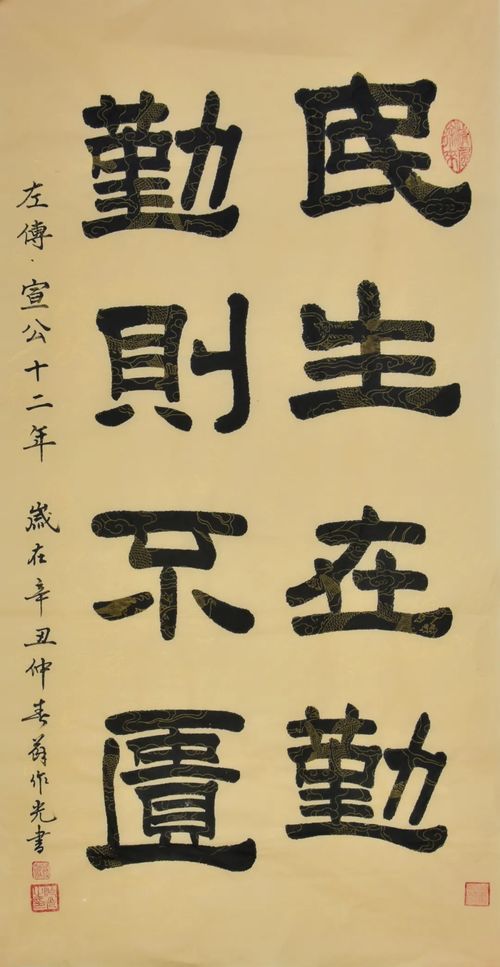 民生在勤
勤則不匱
左傳·宣公十二年 歲在辛丑仲春薛作光書